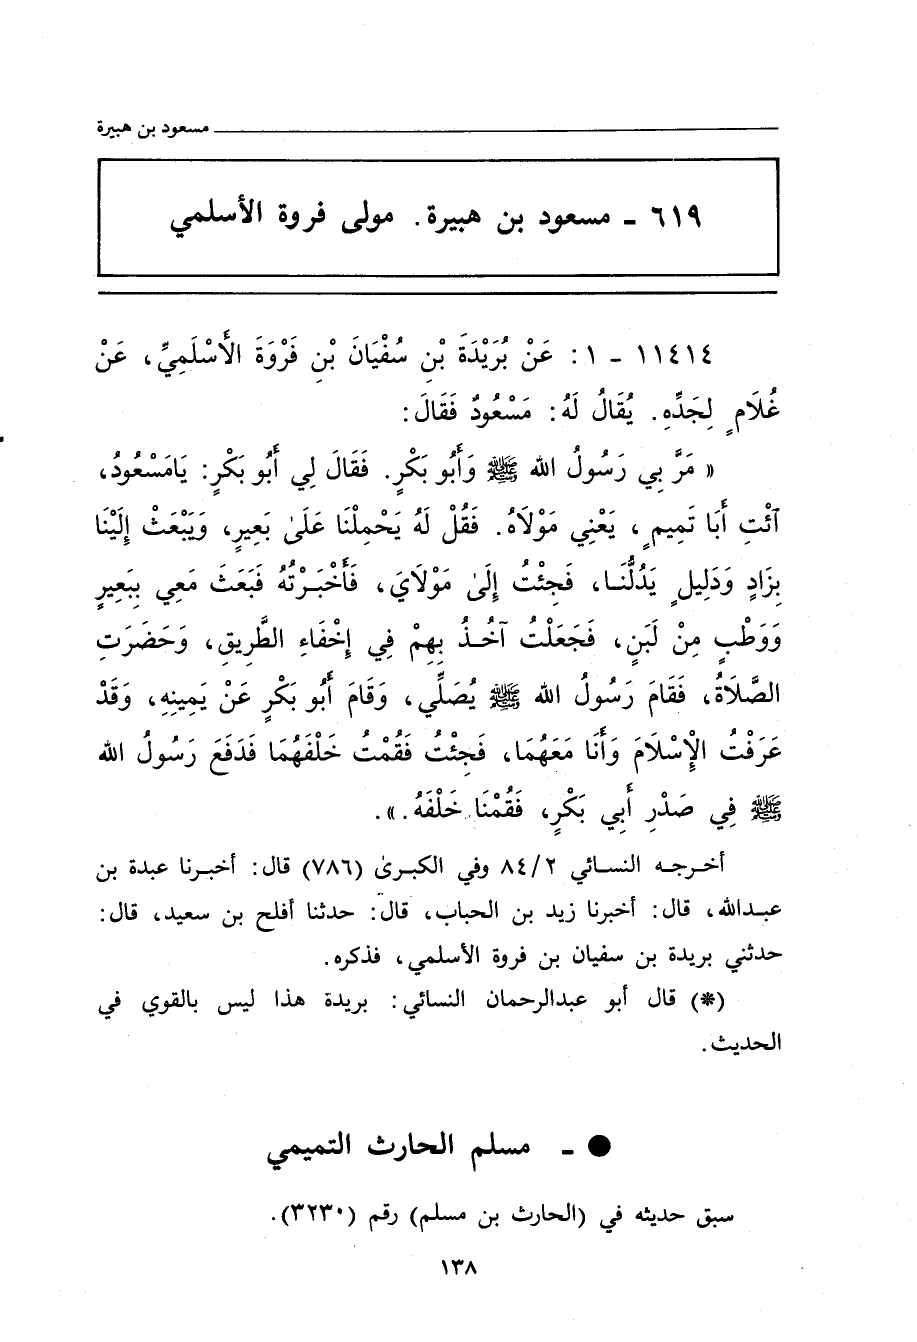 مسعود بن هبيرة
٦١٩ - مسعود بن هبيرة. مولى فروة الأسلمي
١١٤١٤ - ١: عَنْ بُرَيْدَةَ بْنِ سُفْيَانَ بْنِ فَرْوَةَ الأَسْلَمِيِّ، عَنْ
غُلَامٍ لِجَدِّهِ. يُقَالُ لَهُ: مَسْعُودٌ فَقَالَ:
« مَرَّ بِي رَسُولُ الله ﷺ وَأَبُو بَكْرٍ. فَقَالَ لِي أَبُو بَكْرٍ: يَامَسْعُودُ،
آئْتِ أَبَا تَمِيمٍ، يَعْنِي مَوْلَاهُ. فَقُلْ لَهُ يَحْمِلْنَا عَلَىٰ بَعِيرٍ، وَيَبْعَثْ إِلَيْنَا
بِزَادٍ وَدَلِيلٍ يَدُلُّنَا، فَجِئْتُ إِلَىٰ مَوْلَايَ، فَأَخْبَرْتُهُ فَبَعَثَ مَعِي بِبَعِيرٍ
وَوَطْبٍ مِنْ لَبَنٍ، فَجَعَلْتُ آخُذُ بِهِمْ فِي إِخْفَاءِ الطَّرِيقِ، وَحَضَرَتِ
الصَّلَاةُ، فَقَامَ رَسُولُ الله ﷺ يُصَلِّي، وَقَامَ أَبُو بَكْرٍ عَنْ يَمِينِهِ، وَقَدْ
عَرَفْتُ الْإِسْلَامَ وَأَنَا مَعَهُمَا، فَجِئْتُ فَقُمْتُ خَلْفَهُمَا فَدَفَعَ رَسُولُ الله
ﷺ فِي صَدْرِ أَبِي بَكْرٍ، فَقُمْنَا خَلْفَهُ.».
أخرجه النسائي ٨٤/٢ وفي الكبرىٰ (٧٨٦) قال: أخبرنا عبدة بن
عبدالله، قال: أخبرنا زيد بن الحباب، قال: حدثنا أفلح بن سعيد، قال:
حدثني بريدة بن سفيان بن فروة الأسلمي، فذكره.
(*) قال أبو عبدالرحمان النسائي: بريدة هذا ليس بالقوي في
الحديث.
● - مسلم الحارث التميمي
سبق حديثه في (الحارث بن مسلم) رقم (٣٢٣٠).
١٣٨